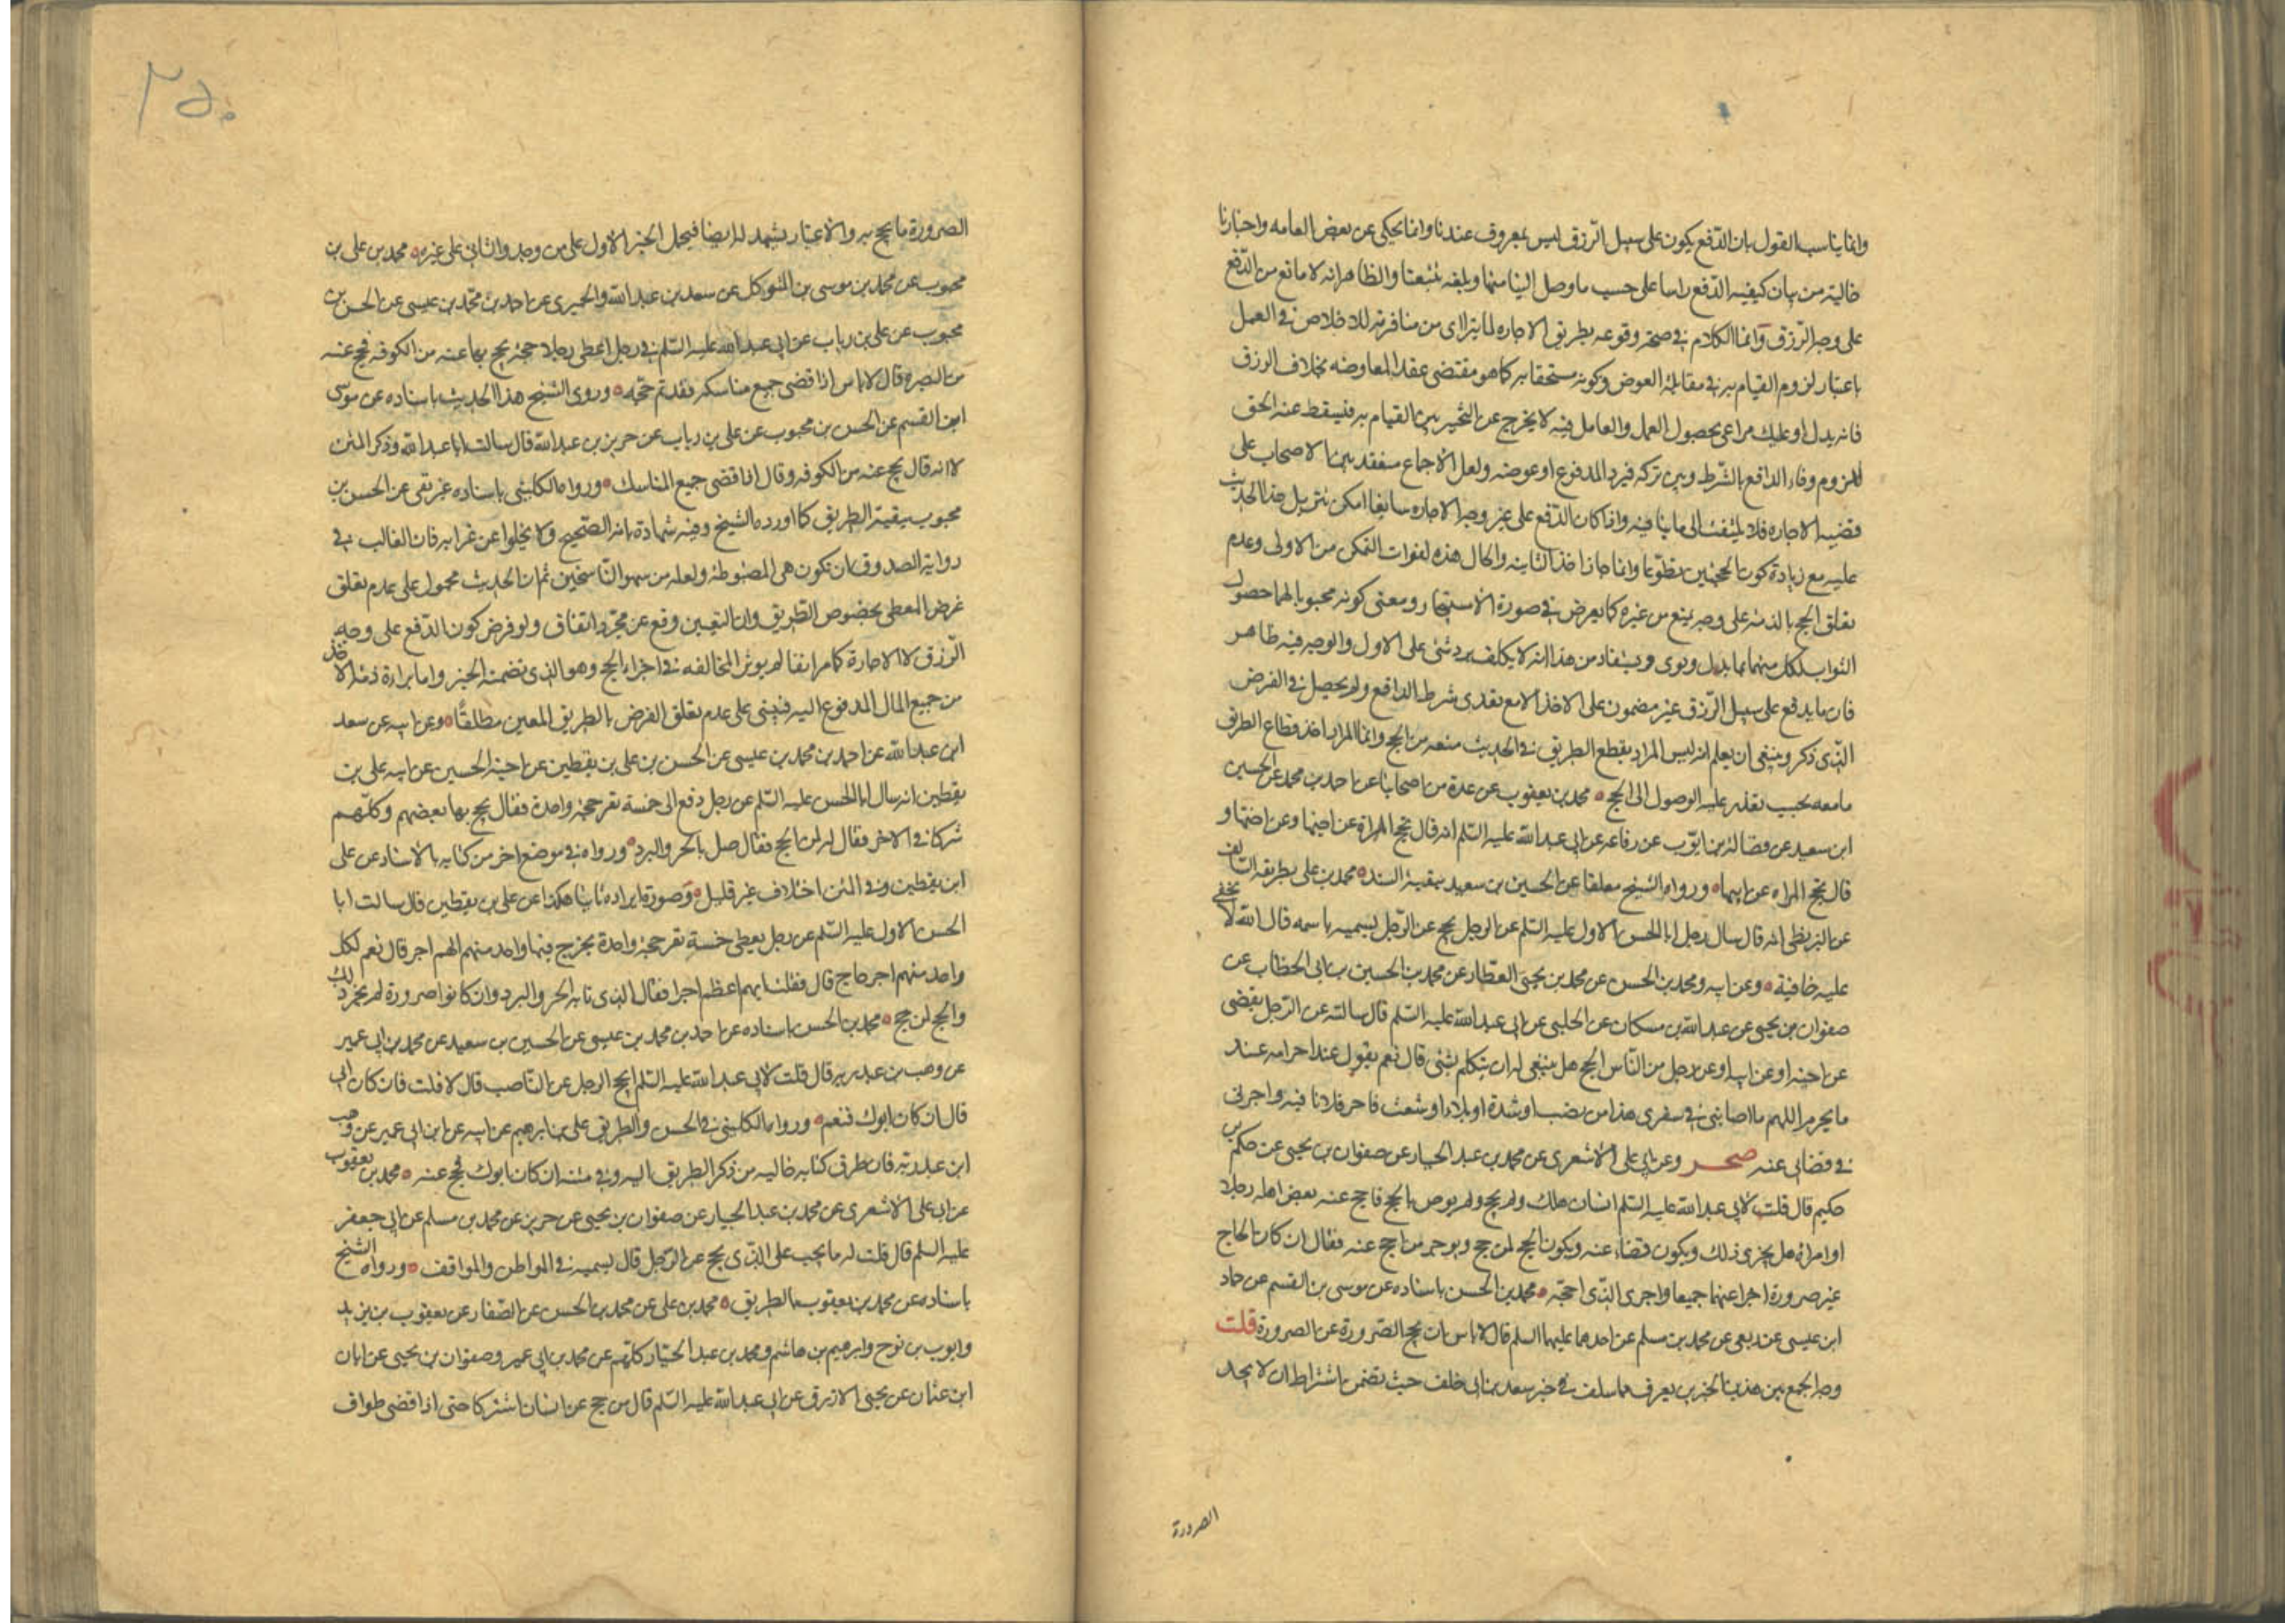 وانما يناسب القول بان الدّفع يكون على سبيل الرّزق ليس بمعروف عندنا وانما يحكى عن بعض العامه واخبارنا
خالية من بيان كيفيه الدّفع راسا على حسب ما وصل الينا منها وبلغه تتبعنا والظاهر انه لا مانع من الدّفع
على وجه الرّزق وانما الكلام في صحة وقوعه بطريق الاجاره لما يتراى من منافرته للاخلاص في العمل
باعتبار لزوم القيام به في مقابلة العوض وكونه مستحقا به كما هو مقتضى عقد المعاوضه بخلاف الرزق
فانه بدل او عليك مراعى بحصول العمل والعامل فيه لا يخرج عن التخيير بين القيام به فيسقط عنه الحق
للزوم وفاء الدافع بالشّرط وبين تركه فيرد المدفوع او عوضه ولعل الاجماع منعقد بين الاصحاب على
قضيه الاجاره فلا يلتفت الى ما ينافيه واذا كان الدّفع على غير وجه الاجاره سايغا امكن تنزيل هذا الحديث
عليه مع زيادة كون الحجتين تطوّعا وانما جاز اخذ الثانيه والحال هذه لفوات التمكن من الاولى وعدم
تعلق الحج بالذمه على وجه يمنع من غيره كما يعرض في صورة الاستيجار ومعنى كونه محبوبا لهما حصول
الثواب لكل منهما بما بذل ونوى ويستفاد من هذا انه لا يكلف برد شئ على الاول والوجه فيه ظاهر
فان ما يدفع على سبيل الرّزق غير مضمون على الاخذ الا مع تعدى شرط الدافع ولم يحصل في الفرض
الذى ذكر وينبغى ان يعلم انه ليس المراد بقطع الطريق في الحديث منعه من الحج وانما المراد اخذ قطاع الطريق
ما معه بحيب تعذر عليه الوصول الى الحج محمد بن يعقوب عن عدة من اصحابنا عن احمد بن محمد عن الحسين
ابن سعيد عن فضالة بن ايّوب عن رفاعه عن ابى عبد الله عليه السّلم انه قال تحج المراة عن اختها وعن اخيها و
قال تحج المراه عن ابيها ورواه الشيخ معلقا عن الحسين بن سعيد ببقية السند محمد بن على بطريقه السالف
عن البزنطى انه قال سال رجل ابا الحسن الاول عليه السّلم عن الرجل يحج عن الرّجل يسميه باسمه قال الله لا تخفى
عليه خافية وعن ابيه ومحمد بن الحسن عن محمد بن يحيى العطار عن محمد بن الحسين بن ابى الخطاب عن
صفوان بن يحيى عن عبد الله بن مسكان عن الحلبى عن ابى عبد الله عليه السّلم قال سالته عن الرّجل يقضى
عن اخيه او عن ابيه او عن رجل من النّاس الحج هل ينبغى له ان يتكلم بشئ قال نعم يقول عند احرامه عند
ما يحرم اللهم ما اصابنى في سفرى هذا من نصب او شدة او بلاء او شعث فاجر فلانا فيه واجرنى
في قضائى عنه صحر وعن ابى على الاشعرى عن محمد بن عبد الجبار عن صفوان بن يحيى عن حكم بن
حكيم قال قلت لابى عبد الله عليه السّلم انسان هلك ولم يحج ولم يوص بالحج فاحج عنه بعض اهله رجلا
او امراة هل يجزى ذلك ويكون قضاء عنه ويكون الحج لمن حج ويوجر من احج عنه فقال ان كان الحاج
غير صرورة اجزا عنهما جميعا واجرى الذى احجّه محمد بن الحسن باسناده عن موسى بن القسم عن حماد
ابن عيسى عن ربعى عن محمد بن مسلم عن احدهما عليهما السلم قال لا باس ان يحج الصّرورة عن الصرورة قلت
وجه الجمع بين هذين الخبرين يعرف مما سلف في خبر سعد بن ابى خلف حيث تضمن اشتراط ان لا يجد
الصرورة
٢٥٠
الصرورة ما يحج به والاعتبار يشهد له ايضا فيحمل الخبر الاول على من وجد والثانى على غيره محمد بن على بن
محبوب عن محمد بن موسى بن المتوكل عن سعد بن عبد الله والحميرى عن احمد بن محمّد بن عيسى عن الحسن بن
محبوب عن على بن رياب عن ابى عبد الله عليه السّلم في رجل اعطى رجلا حجة يحج بها عنه من الكوفه فحج عنه
من البصره قال لا باس اذا قضى جميع مناسكه فقد تم حجّه وروى الشيخ هذا الحديث باسناده عن موسى
ابن القسم عن الحسن بن محبوب عن على بن رياب عن حريز بن عبد الله قال سالت ابا عبد الله وذكر المتن
لا انه قال يحج عنه من الكوفه وقال اذا قضى جميع المناسك ورواه الكلينى باسناده غير نقى عن الحسن بن
محبوب ببقية الطريق كما اورده الشيخ وفيه شهادة بانه الصّحيح ولا يخلوا عن غرابه فان الغالب في
رواية الصدوق ان تكون هى المضبوطه ولعله من سهو النّاسخين ثم ان الحديث محمول على عدم تعلق
غرض المعطى بخصوص الطّريق وان التعيين وقع عن مجرّد اتفاق ولو فرض كون الدّفع على وجه
الرّزق لا الاجارة كما مر انفا لم يوثر المخالفه في اجزاء الحج وهو الذى تضمنه الخبر واما براءة ذمه الاخذ
من جميع المال المدفوع اليه فيبنى على عدم تعلق الفرض بالطريق المعين مطلقًا وعن ابيه عن سعد
ابن عبد الله عن احمد بن محمد بن عيسى عن الحسن بن على بن يقطين عن اخيه الحسين عن ابيه على بن
يقطين انه سال ابا الحسن عليه السّلم عن رجل دفع الى خمسة نفر حجة واحدة فقال يحج بها بعضهم وكلّهم
شركا في الاجر فقال له لمن الحج فقال لمن صلى بالحر والبرد ورواه في موضع اخر من كتابه بالاسناد عن على
ابن يقطين وفي المتن اختلاف غير قليل وصورة ايراده ثانيا هكذا عن على بن يقطين قال سالت ابا
الحسن الاول عليه السّلم عن رجل يعطى خمسة نفر حجة واحدة يخرج فيها واحد منهم الهم اجر قال نعم لكل
واحد منهم اجر حاج قال فقلت ايهم اعظم اجرا فقال الذى نابه الحر والبرد وان كانوا صرورة لم يجز ذلك
والحج لمن حج محمد بن الحسن باسناده عن احمد بن محمد بن عيسى عن الحسين بن سعيد عن محمد بن ابى عمير
عن وهب بن عبد ربه قال قلت لابى عبد الله عليه السّلم ايحج الرجل عن النّاصب قال لا قلت فان كان ابى
قال ان كان ابوك فنعم ورواه الكلينى في الحسن والطريق على بن ابرهيم عن ابيه عن ابن ابى عمير عن وهب
ابن عبد ربه فان طرق كتابه خاليه من ذكر الطريق اليه وفي متنه ان كان ابوك فحج عنه محمد بن يعقوب
عن ابى على الاشعرى عن محمد بن عبد الجبار عن صفوان بن يحيى عن حريز عن محمد بن مسلم عن ابى جعفر
عليه السلم قال قلت له ما يجب على الذّى يحج عن الرّجل قال يسميه في المواطن والمواقف ورواه الشيخ
باسناده عن محمد بن يعقوب بالطريق محمد بن على عن محمد بن الحسن عن الصّفار عن يعقوب بن يزيد
وايوب بن نوح وابرهيم بن هاشم ومحمد بن عبد الجبّار كلهم عن محمد بن ابى عمير وصفوان بن يحيى عن ابان
ابن عثمان عن يحيى الازرق عن ابى عبد الله عليه السّلم قال من حج عن انسان اشتركا حتى اذا قضى طواف